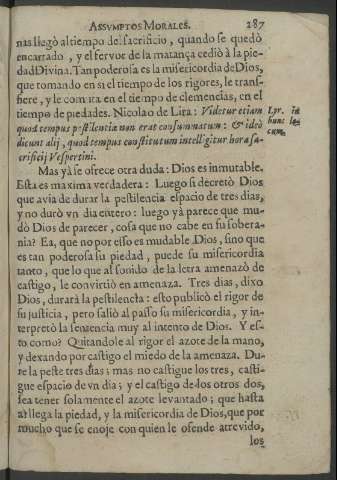 ASSVMPTOS MORALES. 287
nas llegò al tiempo del sacrificio, quando se quedò
encartado, y el fervor de la matança cediò à la pie-
dad Divina. Tan poderosa es la misericordia de Dios,
que tomando en si el tiempo de los rigores, le trans-
fiere, y le comuta en el tiempo de clemencias, en el
tiempo de piedades. Nicolao de Lira: Videtur etiam
quod tempus pestilentiæ non erat consummatum: & ideò
dicunt alij, quod tempus constitutum intelligitur hora sa-
crificij Vespertini.
Lyr. in
hunc lo-
cum.
Mas yà se ofrece otra duda: Dios es inmutable.
Esta es maxima verdadera: Luego si decretò Dios
que avia de durar la pestilencia espacio de tres dias,
y no durò vn dia entero: luego yà parece que mu-
dò Dios de parecer, cosa que no cabe en su sobera-
nia? Ea, que no por esso es mudable Dios, sino que
es tan poderosa su piedad, puede su misericordia
tanto, que lo que al sonido de la letra amenazò de
castigo, le convirtiò en amenaza. Tres dias, dixo
Dios, durarà la pestilencia: esto publicò el rigor de
su justicia, pero saliò al passo su misericordia, y in-
terpretò la sentencia muy al intento de Dios. Y es-
to como? Quitandole al rigor el azote de la mano,
y dexando por castigo el miedo de la amenaza. Du-
re la peste tres dias; mas no castigue los tres, casti-
gue espacio de vn dia; y el castigo de los otros dos,
sea tener solamente el azote levantado; que hasta
aì llega la piedad, y la misericordia de Dios, que por
mucho que se enoje con quien le ofende atrevido,
los